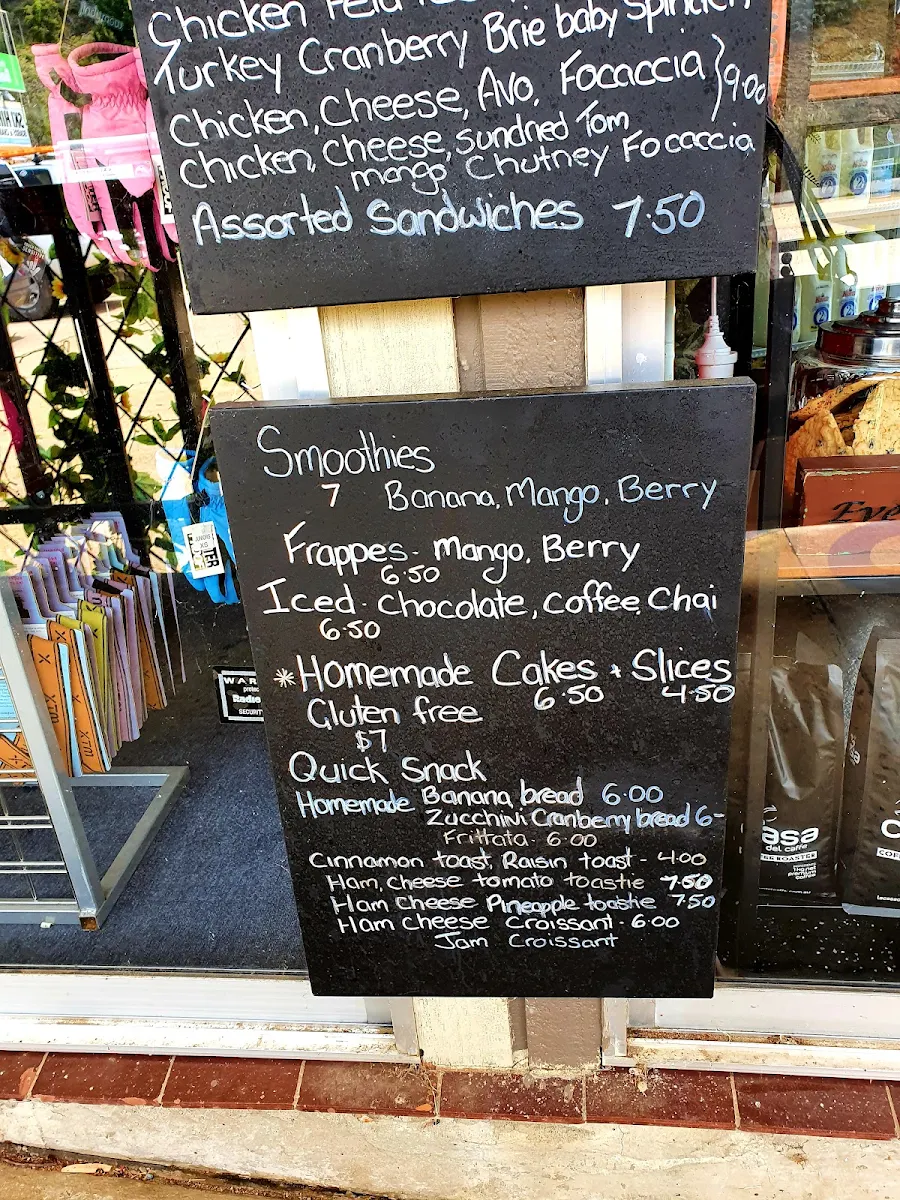 Chicken Feta
Turkey Cranberry Brie baby spinach
Chicken, Cheese, Avo, Focaccia } 9.00
Chicken, Cheese, Sundried Tom
mango Chutney Focaccia
Assorted Sandwiches 7.50
Smoothies
7 Banana, Mango, Berry
Frappes - Mango, Berry
6.50
Iced - Chocolate, Coffee, Chai
6.50
*Homemade Cakes + Slices
6.50 4.50
Gluten free
$7
Quick Snack
Homemade Banana bread 6.00
Zucchini Cranberry bread 6-
Frittata - 6.00
Cinnamon toast, Raisin toast - 4.00
Ham, cheese tomato toastie 7.50
Ham Cheese Pineapple toastie 7.50
Ham Cheese Croissant - 6.00
Jam Croissant
SKI HI
WAR
protec
Radio
SECURIT
XTM
Eve
asa
del caffè
EE ROASTER
COF